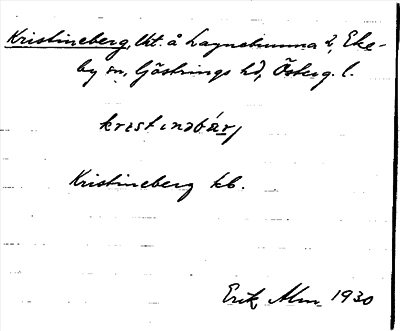 Kristineberg, lht. å Laggnehumma 2, Eke-
by sn, Göstrings hd, Österg. l.
kristinəbärj
Kristineberg kb.
Erik Alm 1930